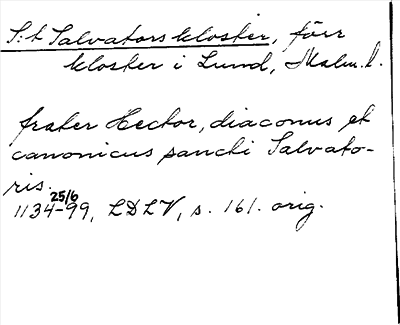 S:t Salvators kloster, förr
kloster i Lund, Malm. l.
frater Hector, diaconus et
canonicus sancti Salvato-
ris.
1134-99 25/6, LDLV, s. 161. orig.